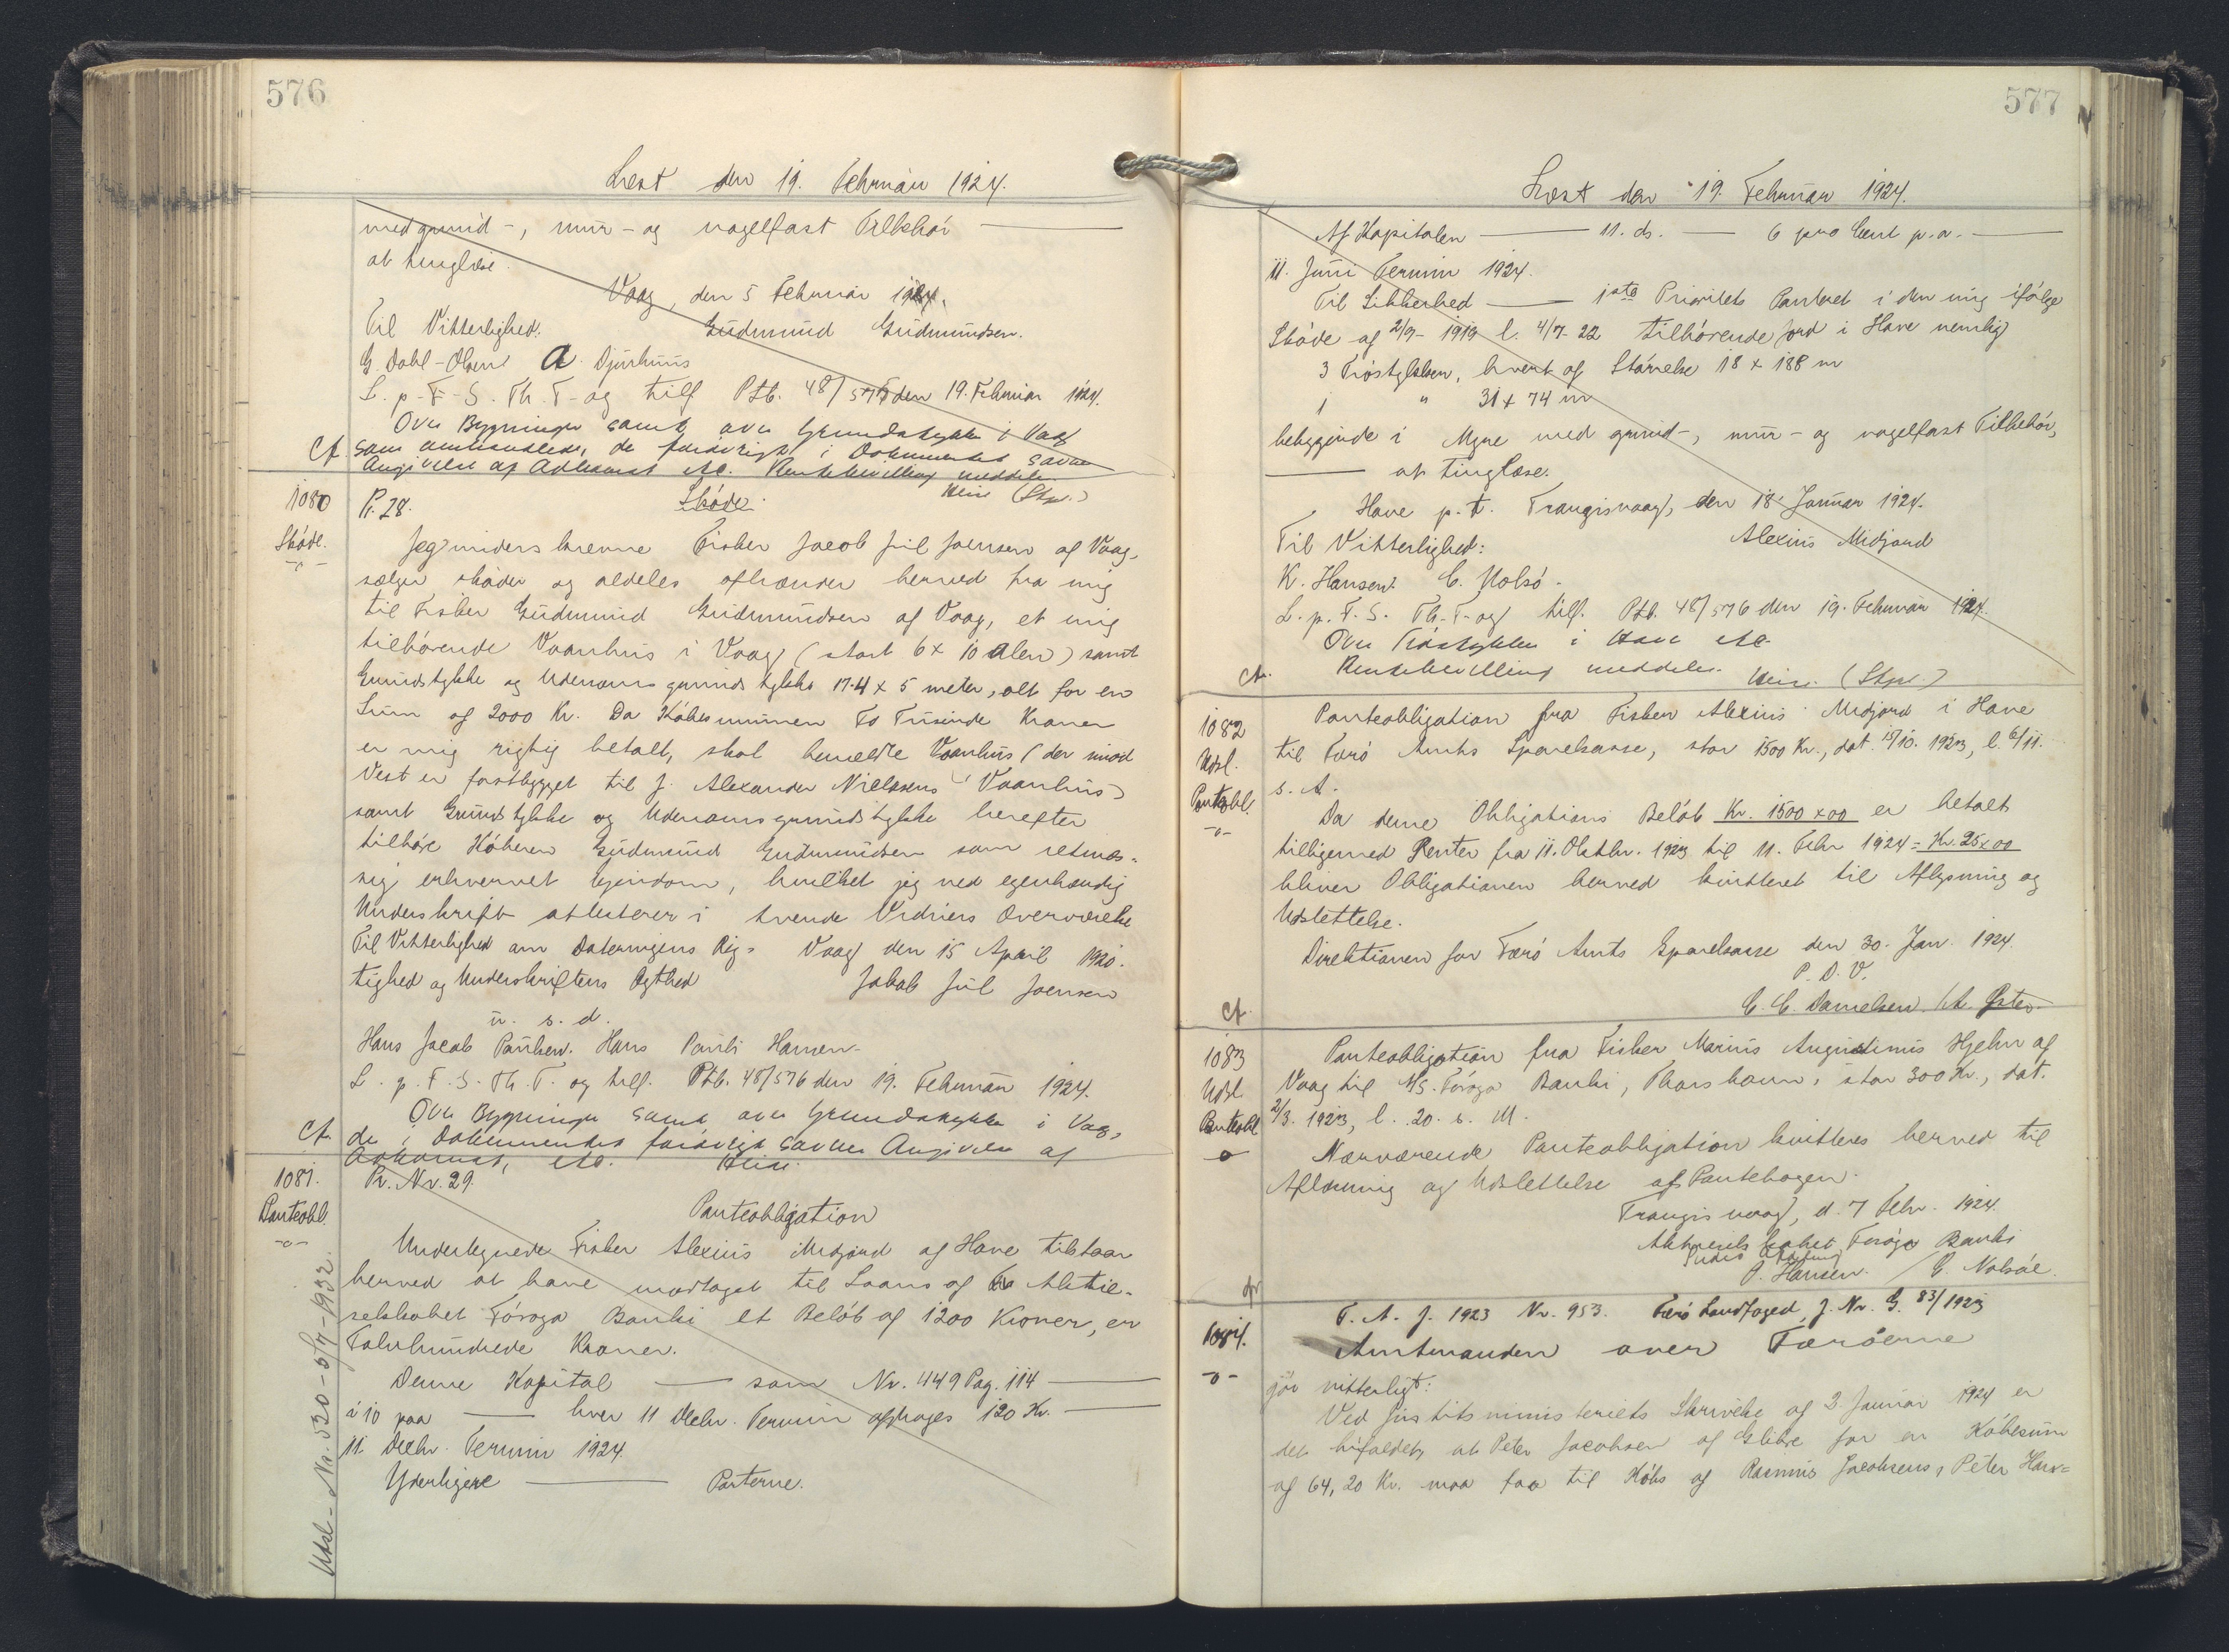 576
Læst den 19. Februar 1924.
med grund-, mur- og nagelfast Tilbehör
at tinglæse.
Vaag, den 5 Februar 1924.
Til Vitterlighed: Gudmund Gudmundsen.
G. Dahl-Olsen A. Djurhuus
L. p. F. S. Th. T. og tilf Ptb. 48/575 den 19. Februar 1924.
Over Bygninger samt over Grundstykke i Vaag
Cf. som ommeldes, de forövrigt i Dokumentet savner
Angivelse af Adkomst etc. Rentebevilling meddeles.
Heise (Stpr.)
1080 Pr. 28. Sköde.
Sköde.
Jeg underskrevne Fisker Jacob Juul Joensen af Vaag,
sælger sköder og aldeles afhænder herved fra mig
til Fisker Gudmund Gudmundsen af Vaag, et mig
tilhörende Vaanhus i Vaag (stort 6 x 10 Alen) samt
Grundstykke og Udenomsgrundstykke 17.4 x 5 meter, alt for en
Sum af 2000 Kr. Da Köbesummen To Tusinde Kroner
er mig rigtig betalt, skal bemeldte Vaanhus (der imod
Vest er fastbygget til J. Alexander Nielsens Vaanhus)
samt Grundstykke og Udenomsgrundstykke herefter
tilhöre Köberen Gudmund Gudmundsen som retmæs-
sig erhvervet Ejendom, hvilket jeg ved egenhændig
Underskrift attesterer i tvende Vidners Overværelse
Til Vitterlighed om Dateringens Rig- Vaag den 15 April 1920.
tighed og Underskriftens Ægthed Jakob Júl Joensen
u. s. d.
Hans Jacob Poulsen. Hans Pauli Hansen.
L. p. F. S. Th. T. og tilf. Ptb. 48/576 den 19. Februar 1924.
Over Bygninger samt over Grundstykke i Vaag,
Cf. de i Dokumentet forövrigt savner Angivelse af
Adkomst, etc. Heise
1081. Pr. Nr. 29.
Panteobl. Panteobligation
Undertegnede Fisker Alexius Midjord af Hove tilstaar
herved at have modtaget til Laans af Aktie-
selskabet Föroya Banki et Belöb af 1200 Kroner, er
Tolvhundrede Kroner.
Denne Kapital — som Nr. 449 Pag. 114 —
á 10 paa — hver 11 Decbr. Termin afdrages 120 Kr. —
11. Decbr. Termin 1924.
Yderligere — Parterne.
Udsl. Nr. 530 - 6/7 - 1932.
577
Læst den 19. Februar 1924.
Af Kapitalen — 11. ds. — 6 pro Cent p.a. —
11. Juni Termin 1924.
Til Sikkerhed — 1ste Prioritets Panteret i den mig ifölge
Sköde af 2/9- 1919 l. 4/7 22 tilhörende Jord i Hove nemlig
3 Tröstykker, hvert af Störrelse 18 x 188 m
1 " 31 x 74 m
bebyggende i Myre med grund-, mur- og nagelfast Tilbehör,
— at tinglæse.
Hove p.t. Trangisvaag, den 18 Januar 1924.
Til Vitterlighed: Alexius Midjord
K. Hansen. C. Nolsö.
L. p. F. S. Th. T. og tilf. Ptb. 48/576 den 19. Februar 1924.
Over Tröstykker i Hove etc.
Cf. Rentebevilling meddeles. Heise. (Stpr.)
1082 Panteobligation fra Fisker Alexius Midjord i Hove
Udsl. til Færö Amts Sparekasse, stor 1500 Kr., dat. 15/10. 1923, l. 6/11.
Panteobl. s. A.
Da denne Obligations Belöb Kr. 1500 x 00 er betalt
tilligemed Renter fra 11. Oktbr. 1923 til 11. Febr 1924 = Kr. 25 x 00
bliver Obligationen herved kvitteret til Aflysning og
Udslettelse.
Direktionen for Færö Amts Sparekasse den 30. Jan. 1924.
P. D. V.
Cf. C. C. Danielsen. / A. Öster
1083 Panteobligation fra Fisker Marius Augustinus Hjelm af
Udsl. Vaag til A/S. Föroya Banki, Thorshavn, stor 300 Kr., dat.
Panteobl 2/3. 1923, l. 20. s. M.
Nærværende Panteobligation kvitteres herved til
Aflæsning og Udslettelse af Pantebogen.
Trangisvaag, d. 7 Febr. 1924.
Aktieselskabet Föroya Banki
P. Hansen. / C. Nolsöe.
1084. F. A. J. 1923 Nr. 953. Færö Landfoged J. Nr. G. 83/1923
Amtmanden over Færöerne
gör vitterligt:
Ved Justitsministeriets Skrivelse af 3. Januar 1924 er
det bifaldet, at Peter Jacobsen af Glibre for en Köbesum
af 64,20 Kr. maa faa til Köbs af Rasmus Jacobsens, Peter Han=